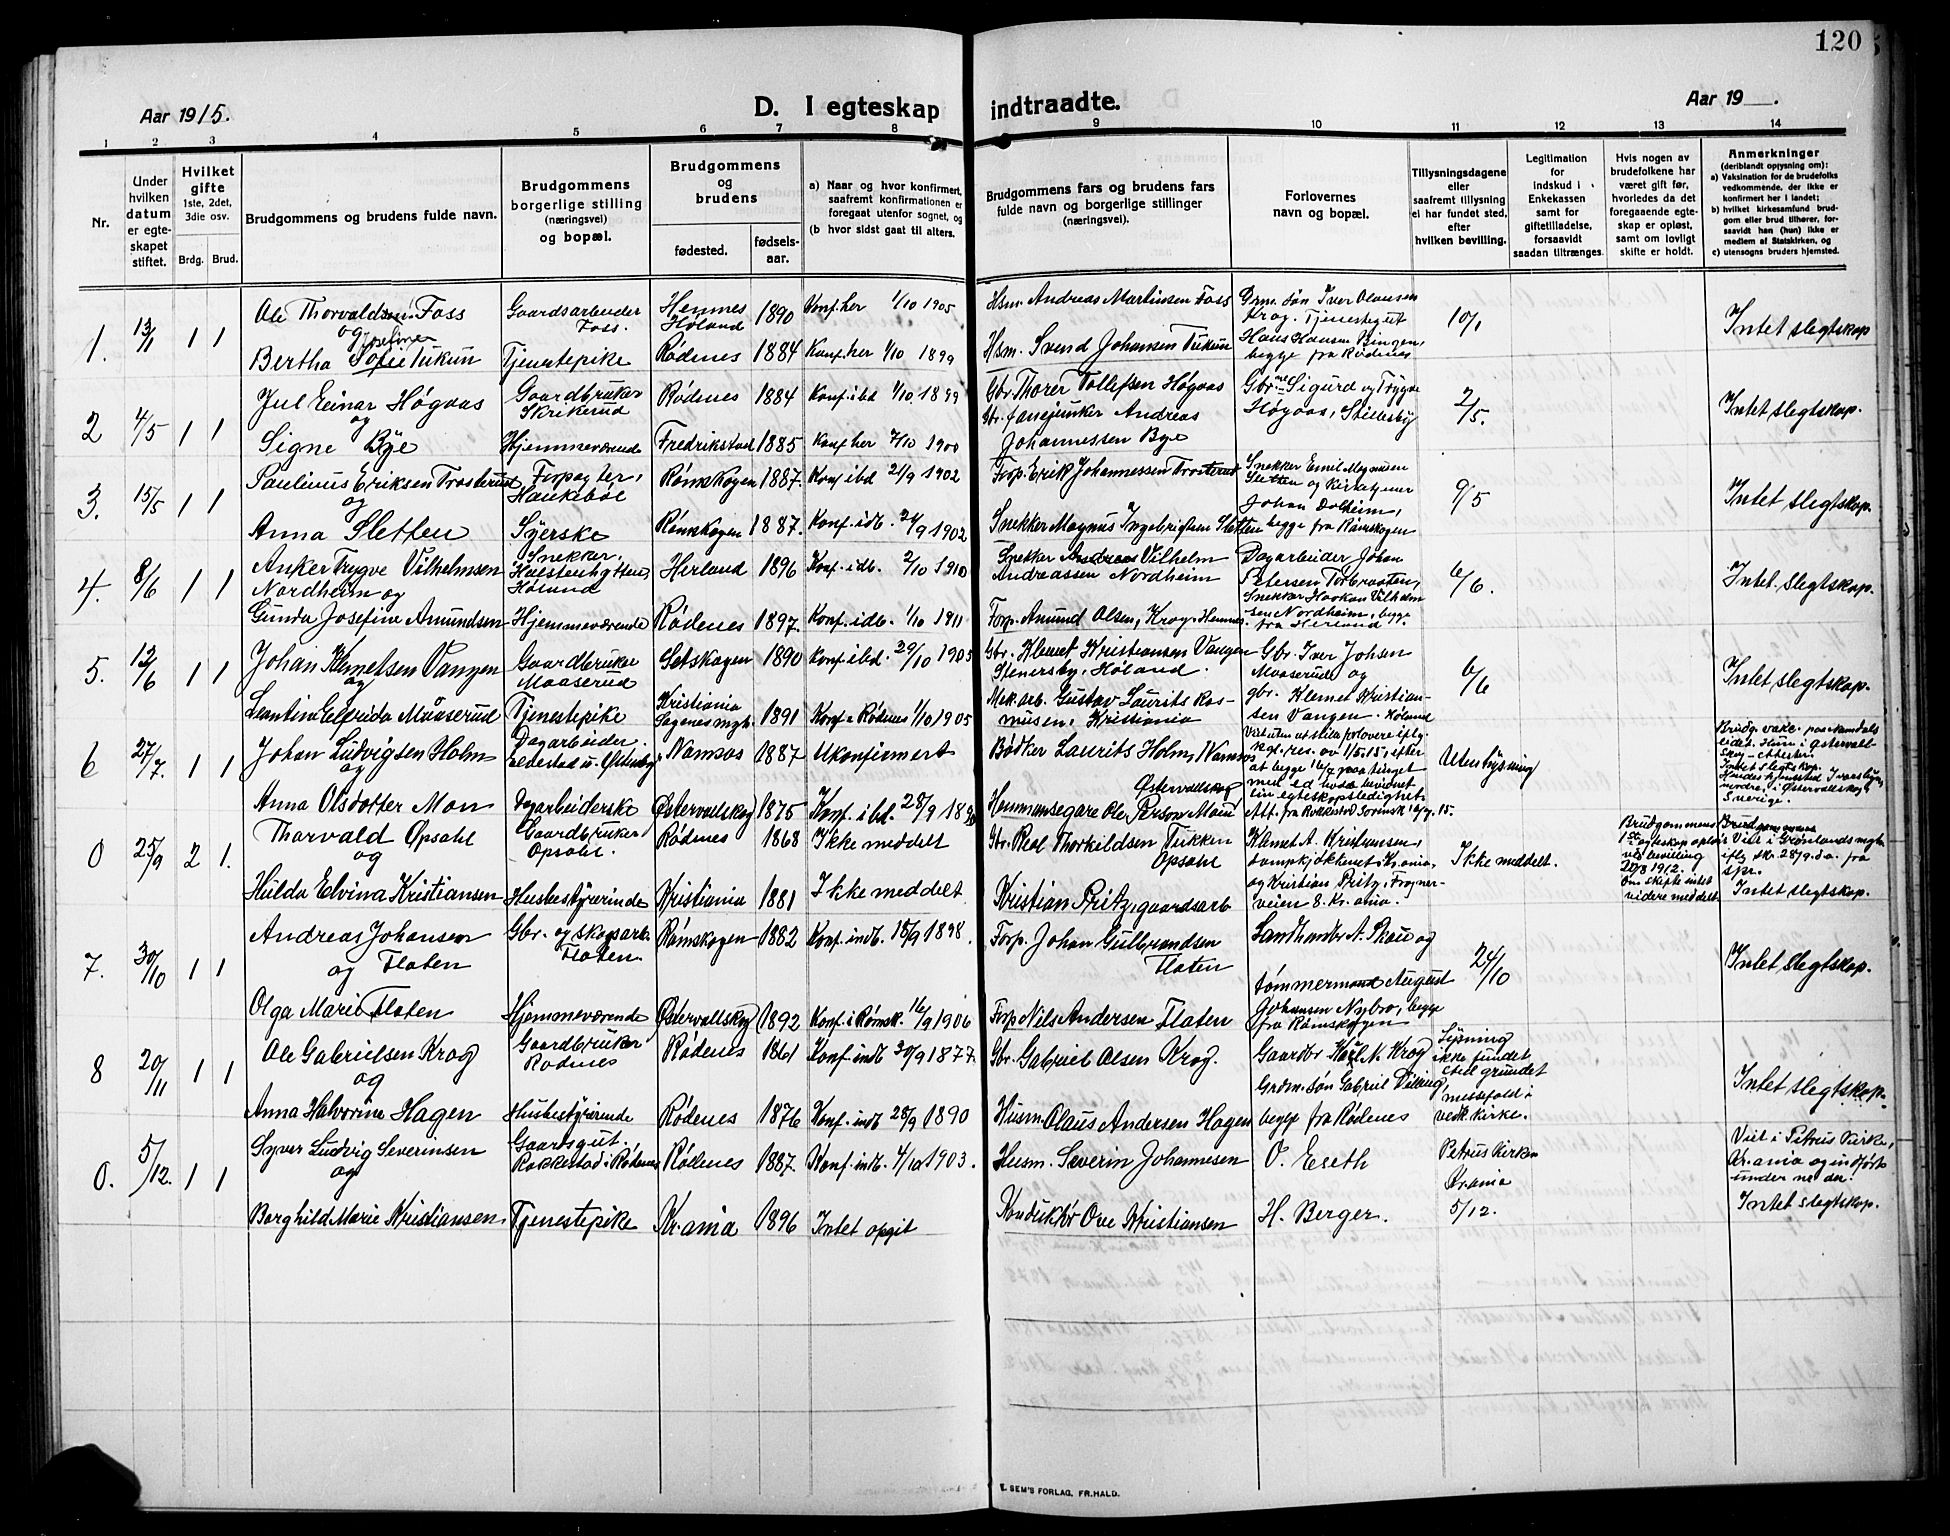 120
Aar 1915.
D. I egteskap indtraadte.
Aar 19
1 2 3 4 5 6 7 8 9 10 11 12 13 14
Nr.
Under hvilken datum er egteskapet stiftet.
Hvilket gifte 1ste, 2det, 3die osv.
Brdg. Brud.
Brudgommens og brudens fulde navn.
Brudgommens borgerlige stilling (næringsvei) og bopæl.
Brudgommens og brudens
fødested. fødselsaar.
a) Naar og hvor konfirmert, saafremt konfirmationen er foregaat utenfor sognet, og
(b hvor sidst gaat til alters.
Brudgommens fars og brudens fars fulde navn og borgerlige stillinger (næringsvei).
Forlovernes navn og bopæl.
Tillysningsdagene eller saafremt tillysning ei har fundet sted, efter hvilken bevilling.
Legitimation for indskud i Enkekassen samt for giftetilladelse, forsaavidt saadan tiltrænges.
Hvis nogen av brudefolkene har været gift før, hvorledes da det foregaaende egteskap er opløst, samt om lovligt skifte er holdt.
Anmerkninger (deriblandt opysning om):
a) Vaksination for de brudefolks vedkommende, der ikke er konfirmert her i landet;
b) hvilket kirkesamfund brudgom eller brud tilhører, forsaavidt han (hun) ikke er medlem af Statskirken, og
c) utensogns bruders hjemsted.
1. 13/1 1 1 Ole Thorvaldsen Foss Gaardsarbeider Foss. Hemnes Høland 1890 Konf. her 1/10 1905 Hsm. Andreas Martinsen Foss Grm. søn Iver Olausen Krog. Tjenestegut 10/1 Intet slegtskap
og Josefine
Bertha Sofie Tukun Tjenestepike Rødenes 1884 Konf. her 1/10 1899 Hsm. Svend Johansen Tukun Hans Hansen begge fra Rødenes
2 4/5 1 1 Jul Einar Høgaas Gaardbruker Skrikerud Rødenes 1884 Konf. ibd 1/10 1899 Gbr. Thorer Tollefsen Høgaas Gbr.ne Sigurd og Trygve Høgaas, Stillesby 2/5. Intet slegtskap.
og
Signe Bye Hjemmeværende Fredrikstad 1885 Konf. her 7/10 1900 Andreas Johannessen Bye
3. 15/5 1 1 Paulinus Eriksen Trosterud Forpagter, Haukebøl Rømskogen 1887. Konf. ibd 21/9 1902 Forp. Erik Johannessen Trosterud Snekker Emil Magnusen Sletten og Kirketjener Johan Dolheim, 9/5 Intet slegtskap.
og
Anna Sletten Syerske Rømskogen 1887. Konf. idb. 24/9 1902 Snekker Magnus Ingebrigtsen Sletten begge fra Rømskogen
4. 8/6 1 1 Anker Trygve Vilhelmsen Nordheim og Snekker, Høland Herland 1896 Konf. idb. 2/10 1910 Snekker Andreas Vilhelm Andreassen Nordheim Dagarbeider Johan Petersen Torbraaten, 6/6. Intet. slegtskap.
Gunda Josefine Amundsen Hjemmeværende Rødenes 1897. Konf. idb. 1/10 1911 Forp. Amund Olsen, Krog, Hemnes. Snekker Haakon Vilhelmsen Nordheim, begge fra Herland
5. 12/6 1 1 Johan Klemetsen Vangen Gaardbruker Maaserud Setskogen 1890 Konf. ibd. 29/10 1905 Gbr. Klemet Kristiansen Vangen Stenersby, Høland. Gbr. Iver Johsen Maaserud og 6/6 Intet slegtskap.
og
Leontine Elfrida Maaserud Tjenestepike Kristiania Sagenes mgh. 1891 Konf. i Rødenes 1/10 1905 Mek. arb. Gustav Laurits Rasmusen, Kristiania gbr. Klemet Kristiansen Vangen. Høland
6 27/7. 1 1 Johan Ludvigsen Holm Dagarbeider. Namsos 1887 Ukonfirmert Bødker Laurits Holm, Namsos Viet uten at stille forlovere iflg. kgl. res. av 1/5.15, efter at begge 16/7 paa tinget med ed hvde bevidnet sin egteskapsledighet. Att. fra Rokkestad Sorensk. 16/7. 15. Uten lysning
og
Anna Olsdotter Mon Dagarbeiderske Østervallskog 1875 Konf. i bd. 28/9 Østervallskog Hemmansegare Ole Person Mon
Intet slegtskap. Hendes hjemsted, i Østervallskog, Sverige.
0 25/9 2 1. Thorvald Opsahl Gaardbruker Opsahl. Rødenes 1868 Ikke meddelt Gbr. Real Thorkildsen Tukken Opsahl Klemet A. Kristiansen, dampkjøkkenet, Kr.ania. Ikke meddelt. Brudgommens 1ste egteskap opløst ved bevilling 20/8 1912. Om skifte intet videre meddelt. Viet i Grønlands mgh. iflg. sk. 28/9. d.a. fra spr. Intet slegtskap.
og
Hulda Elvina Kristiansen Husbestyrerinde Kristiania 1881 Ikke meddelt Kristian Pritz, gaardsarb og Kristian Pritz, Frognerveien 8. Kr.ania.
7. 30/10 1 1 Andreas Johansen Gbr. og skogsarb. Flaten. Rømskogen 1882 Konf. indb. 18/9 1898. Forp. Johan Gulbrandsen Flaten Landhandler A. Skau og 24/10 Intet slegtskap.
og Flaten
Olga Marie Flaten Hjemmeværende Østervallskog 1892 Konf. i Rømsk. 16/9 1906 Forp. Nils Andersen Flaten tømmermand August Johansen Nybro, begge fra Rømskogen
8 20/11 1 1 Ole Gabrielsen Krog Gaardbruker Rødenes Rødenes 1861 Konf. indb. 30/9 1877. Gbr. Gabriel Olsen Krog. Gaardbr Karl M. Krog Lysning ikke fundet sted grundet messefald i vedk. kirke. Intet slegtskap.
og
Anna Halvorine Hagen Husbestyrerinde Rødenes 1876 Konf. indb. 28/9 1890 Husm. Olaus Andersen Hagen Grdm. søn Gabriel Viking, begge fra Rødenes
0. 5/12. 1 1 Syver Ludvig Severinsen Gaardsgut. Rakkestad i Rødenes Rødenes 1887. Konf. indb. 4/10 1903. Husm. Severin Johannesen O. Eseth Petrus Kirken Kr.ania 5/12. Viet i Petrus Kirke, Kr.ania og indført under no der. Intet slegtskap.
og
Borghild Marie Kristiansen Tjenestepike Kr.ania 1896 Intet opgit Konduktør Ove Kristiansen H. Berger.
E. SEM'S FORLAG, FR.HALD.